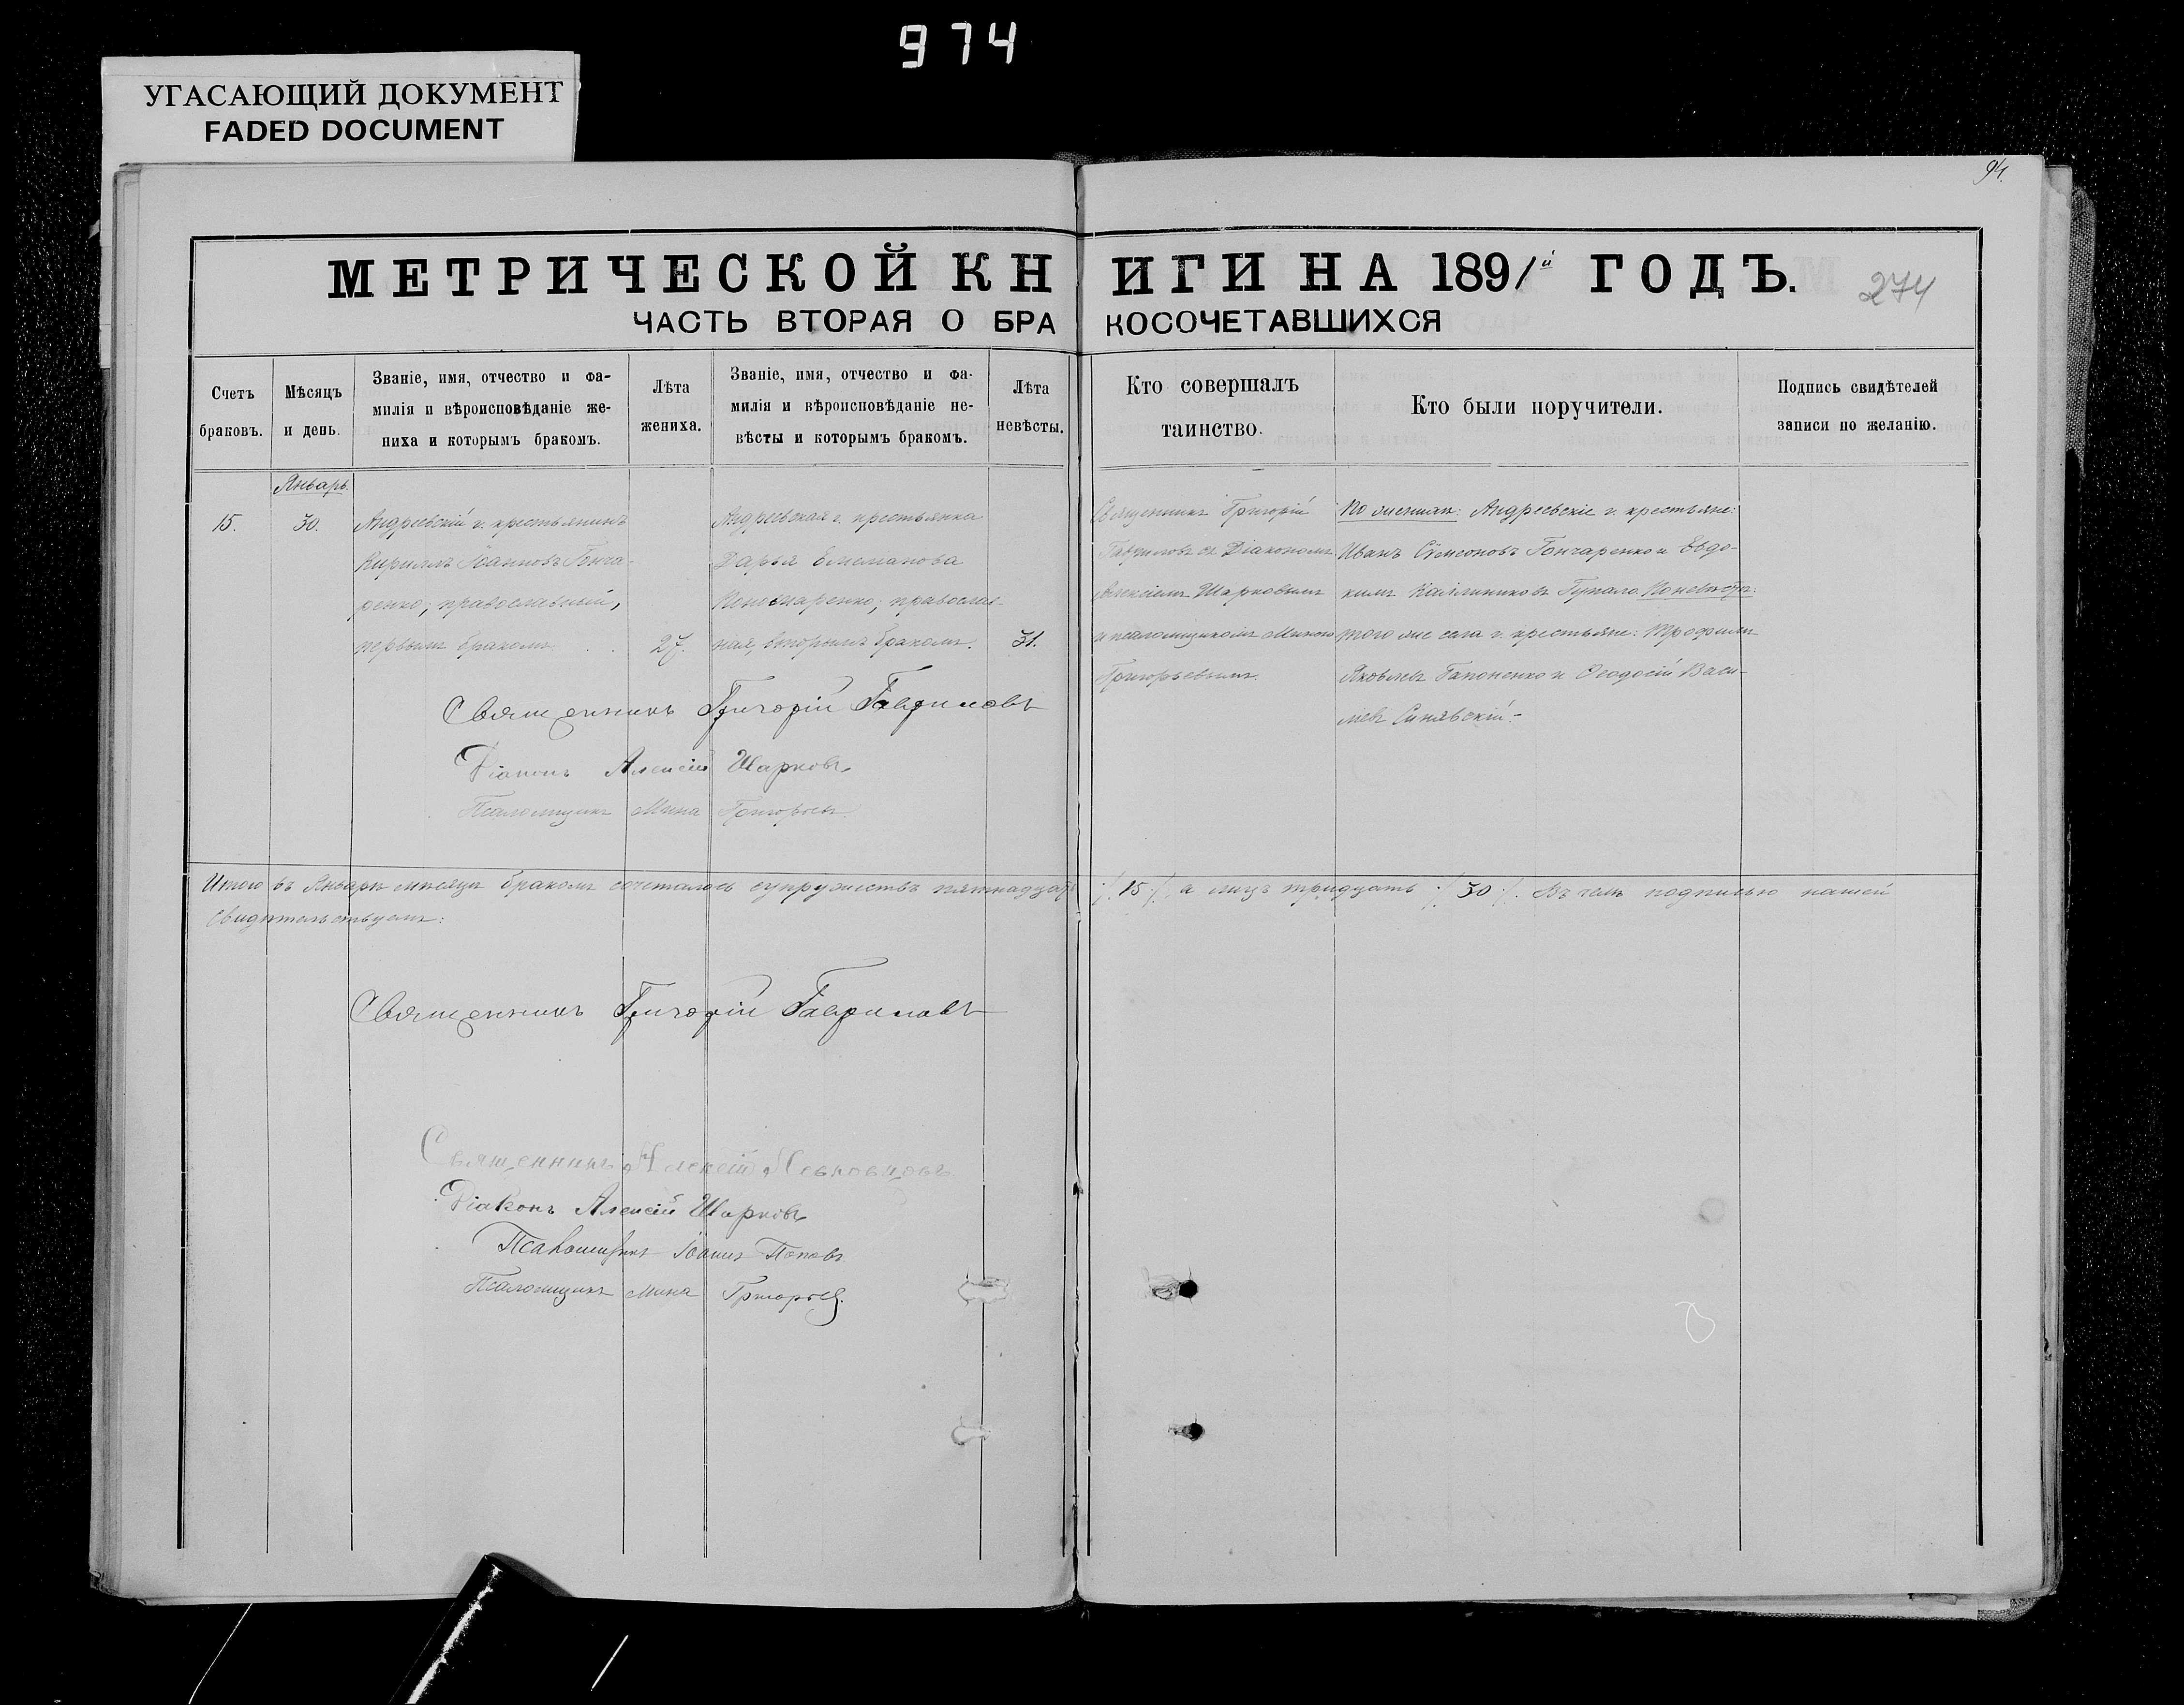 974
УГАСАЮЩИЙ ДОКУМЕНТ
FADED DOCUMENT
94.
МЕТРИЧЕСКОЙ КНИГИ НА 1891й ГОДЪ.
274
ЧАСТЬ ВТОРАЯ О БРАКОСОЧЕТАВШИХСЯ
Счетъ
браковъ.
Мѣсяцъ
и день.
Званіе, имя, отчество и фа-
милія и вѣроисповѣданіе же-
ниха и которымъ бракомъ.
Лѣта
жениха.
Званіе, имя, отчество и фа-
милія и вѣроисповѣданіе не-
вѣсты и которымъ бракомъ.
Лѣта
невѣсты.
Кто совершалъ
таинство.
Кто были поручители.
Подпись свидѣтелей
записи по желанію.
15.
Январь.
30.
Андреевскій г. крестьянинъ
Кириллъ Іоанновъ Гонча-
ренко; православный,
первымъ бракомъ. . .
27.
Андреевская г. крестьянка
Дарья Емельянова
Пономаренко; православ-
ная, вторымъ бракомъ.
31.
Священникъ Григорій
Гавриловъ съ Діакономъ
Алексіемъ Шарковымъ
и псаломщикомъ Миною
Григорьевымъ.
По женихѣ: Андреевскіе г. крестьяне:
Иванъ Сѵмеоновъ Гончаренко и Евдо-
кимъ Каллиниковъ По невѣстѣ:
того же села г. крестьяне: Трофимъ
Яковлевъ Гапоненко и Ѳеодосій Васи-
льевъ Синявскій.-
Священникъ Григорій Гавриловъ
Діаконъ Алексій Шарковъ
Псаломщикъ Мина Григорьевъ
Итого въ Январѣ мѣсяцѣ бракомъ сочеталось супружествъ пятнадцать /.15./, а лицъ тридцать ./.30./. Въ чемъ подписью нашей
свидѣтельствуемъ:
Священникъ Григорій Гавриловъ
Священникъ Алексій
Діаконъ Алексій Шарковъ
Псаломщикъ Іоаннъ Поповъ
Псаломщикъ Мина Григорьевъ.